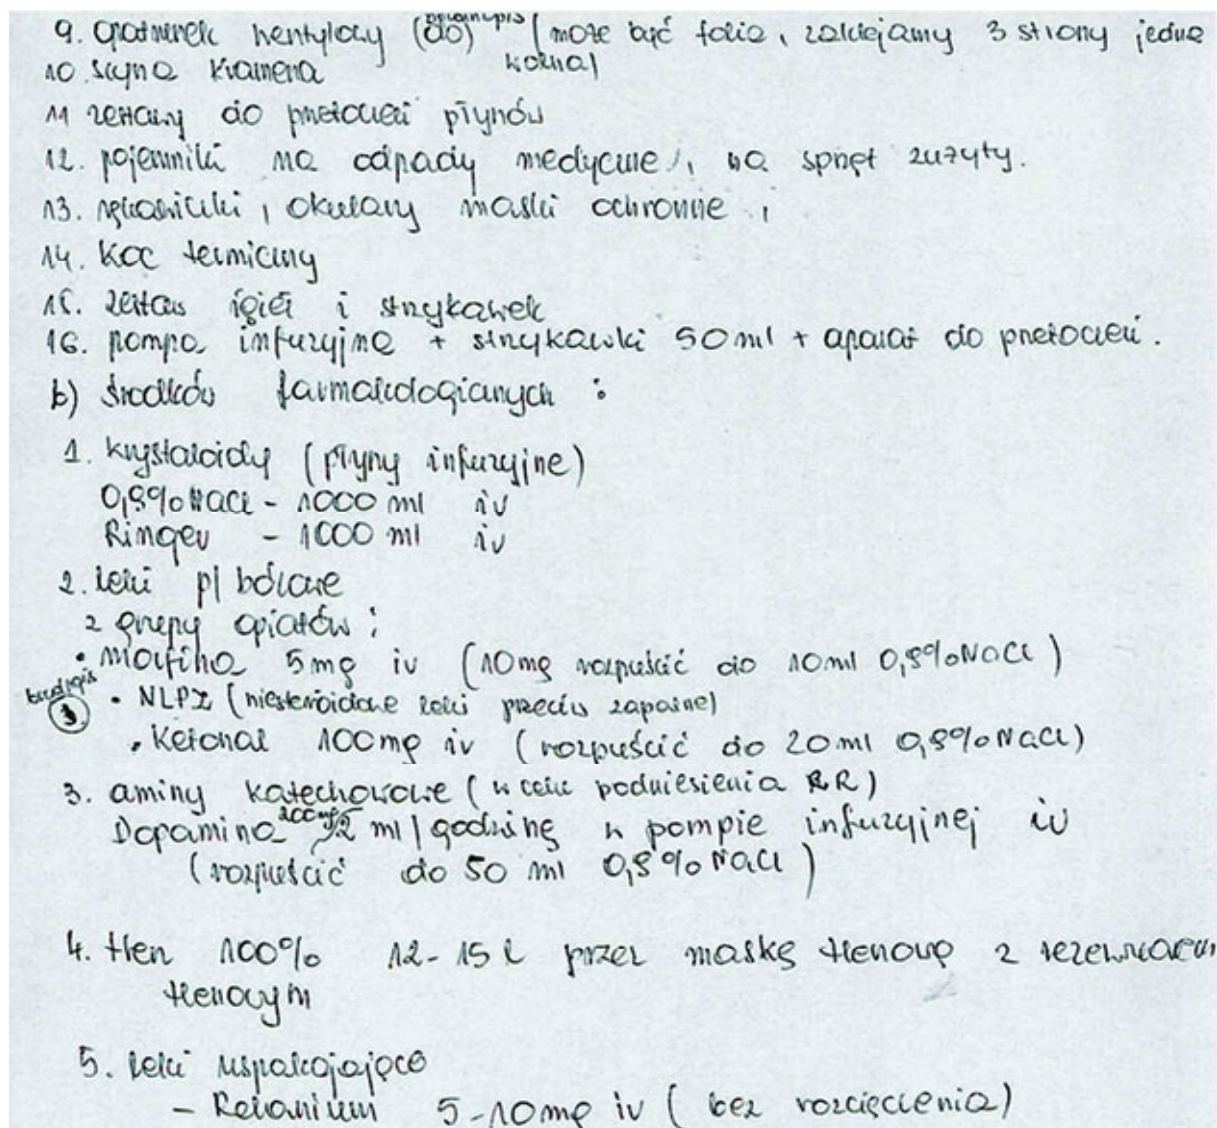 9. opatrunek wentylowy (do) (może być folia, zaklejamy 3 strony jedna
wolna)
10 szyna Kramera
11 zestawy do przetoczeń płynów
12. pojemniki na odpady medyczne, na sprzęt zużyty.
13. rękawiczki, okulary maski ochronne,
14. Koc termiczny
15. zestaw igieł i strzykawek
16. pompa infuzyjna + strzykawki 50 ml + aparat do przetoczeń.
b) środków farmakologicznych :
1. krystaloidy (płyny infuzyjne)
0,9% NaCl - 1000 ml iv
Ringer - 1000 ml iv
2. leki p/bólowe
z grupy opiatów :
• morfina 5mg iv (10mg rozpuścić do 10ml 0,9% NaCl)
brudnopis
• NLPZ (niesteroidowe leki przeciw zapalne)
• Ketonal 100mg iv (rozpuścić do 20ml 0,9% NaCl)
3. aminy katecholowe (w celu podniesienia RR)
Dopamina 200mg ml/godzinę w pompie infuzyjnej iv
(rozpuścić do 50 ml 0,9% NaCl)
4. tlen 100% 12-15 l przez maskę tlenową z rezerwuarem
tlenowym
5. leki uspokajające
- Relanium 5-10mg iv (bez rozcieńczenia)